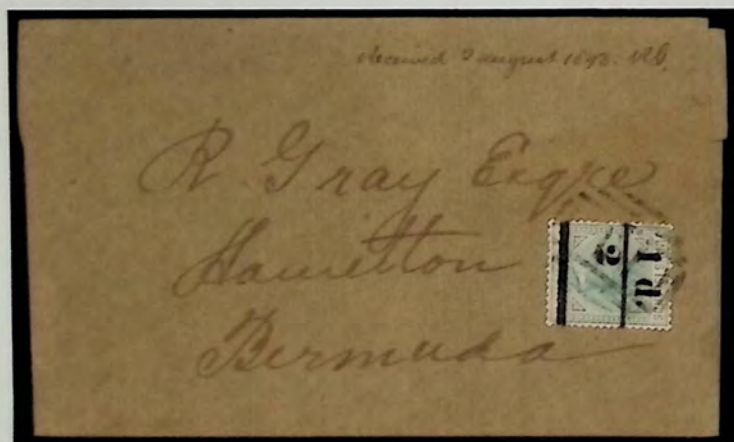 received 2 august 1893. RG.
R Gray Esqre
Hamilton
Bermuda
1
2
d.